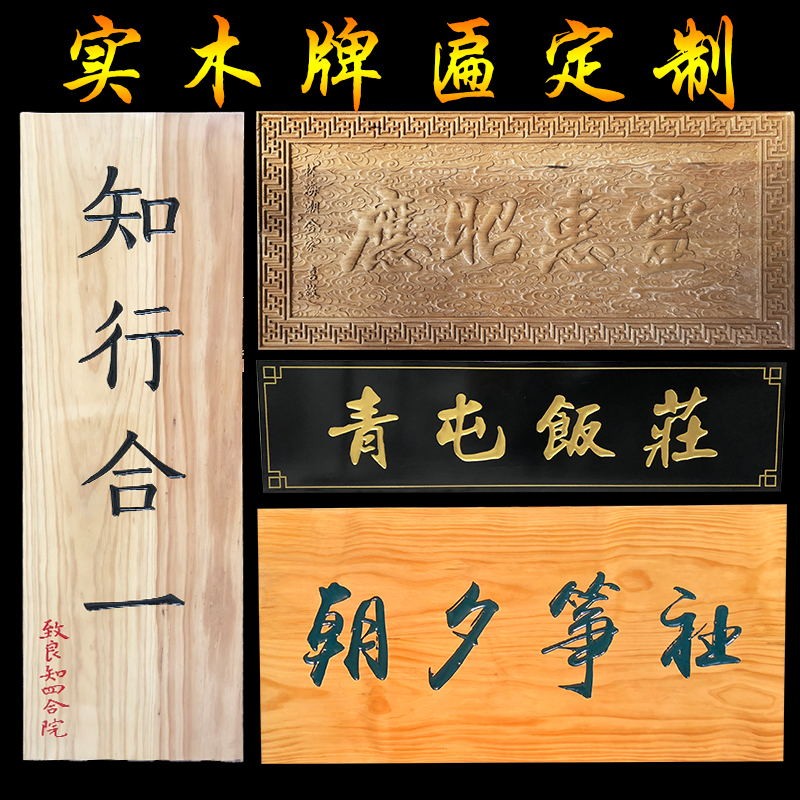 实木牌匾定制
知行合一
致良知四合院
應昭惠靈
青屯飯莊
朝夕筝社